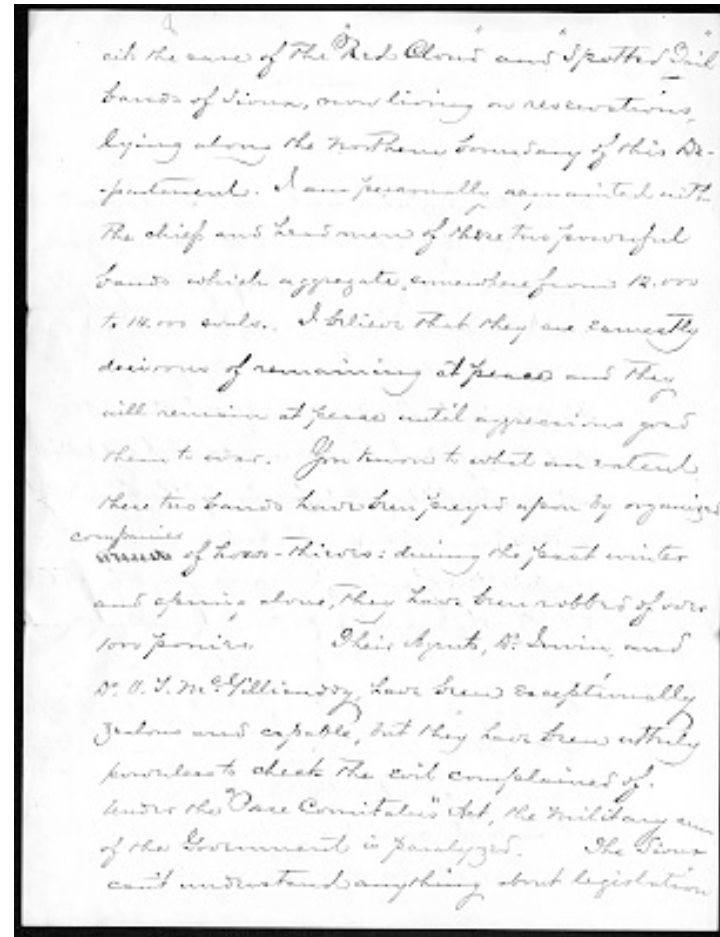 cite the case of the "Red Cloud" and "Spotted Tail"
bands of Sioux, now living on reservations,
lying along the Northern boundary of this De-
-partment. I am personally acquainted with
the chiefs and head men of these two powerful
bands which aggregate, somewhere from 12.000
to 14.000 souls. I believe that they are earnestly
desirous of remaining at peace and they
will remain at peace until aggressions goad
them to war. You know to what an extent
these two bands have been preyed upon by organized
companies
of horse-thieves: during the past winter
and spring alone, they have been robbed of over
1000 ponies. Their Agents, Dr. Irwin, and
Dr. V. T. McGillicuddy, have been exceptionally
zealous and capable, but they have been utterly
powerless to check the evil complained of.
Under the "Posse Comitatus" Act, the military arm
of the Government is paralyzed. The Sioux
can't understand anything about legislation